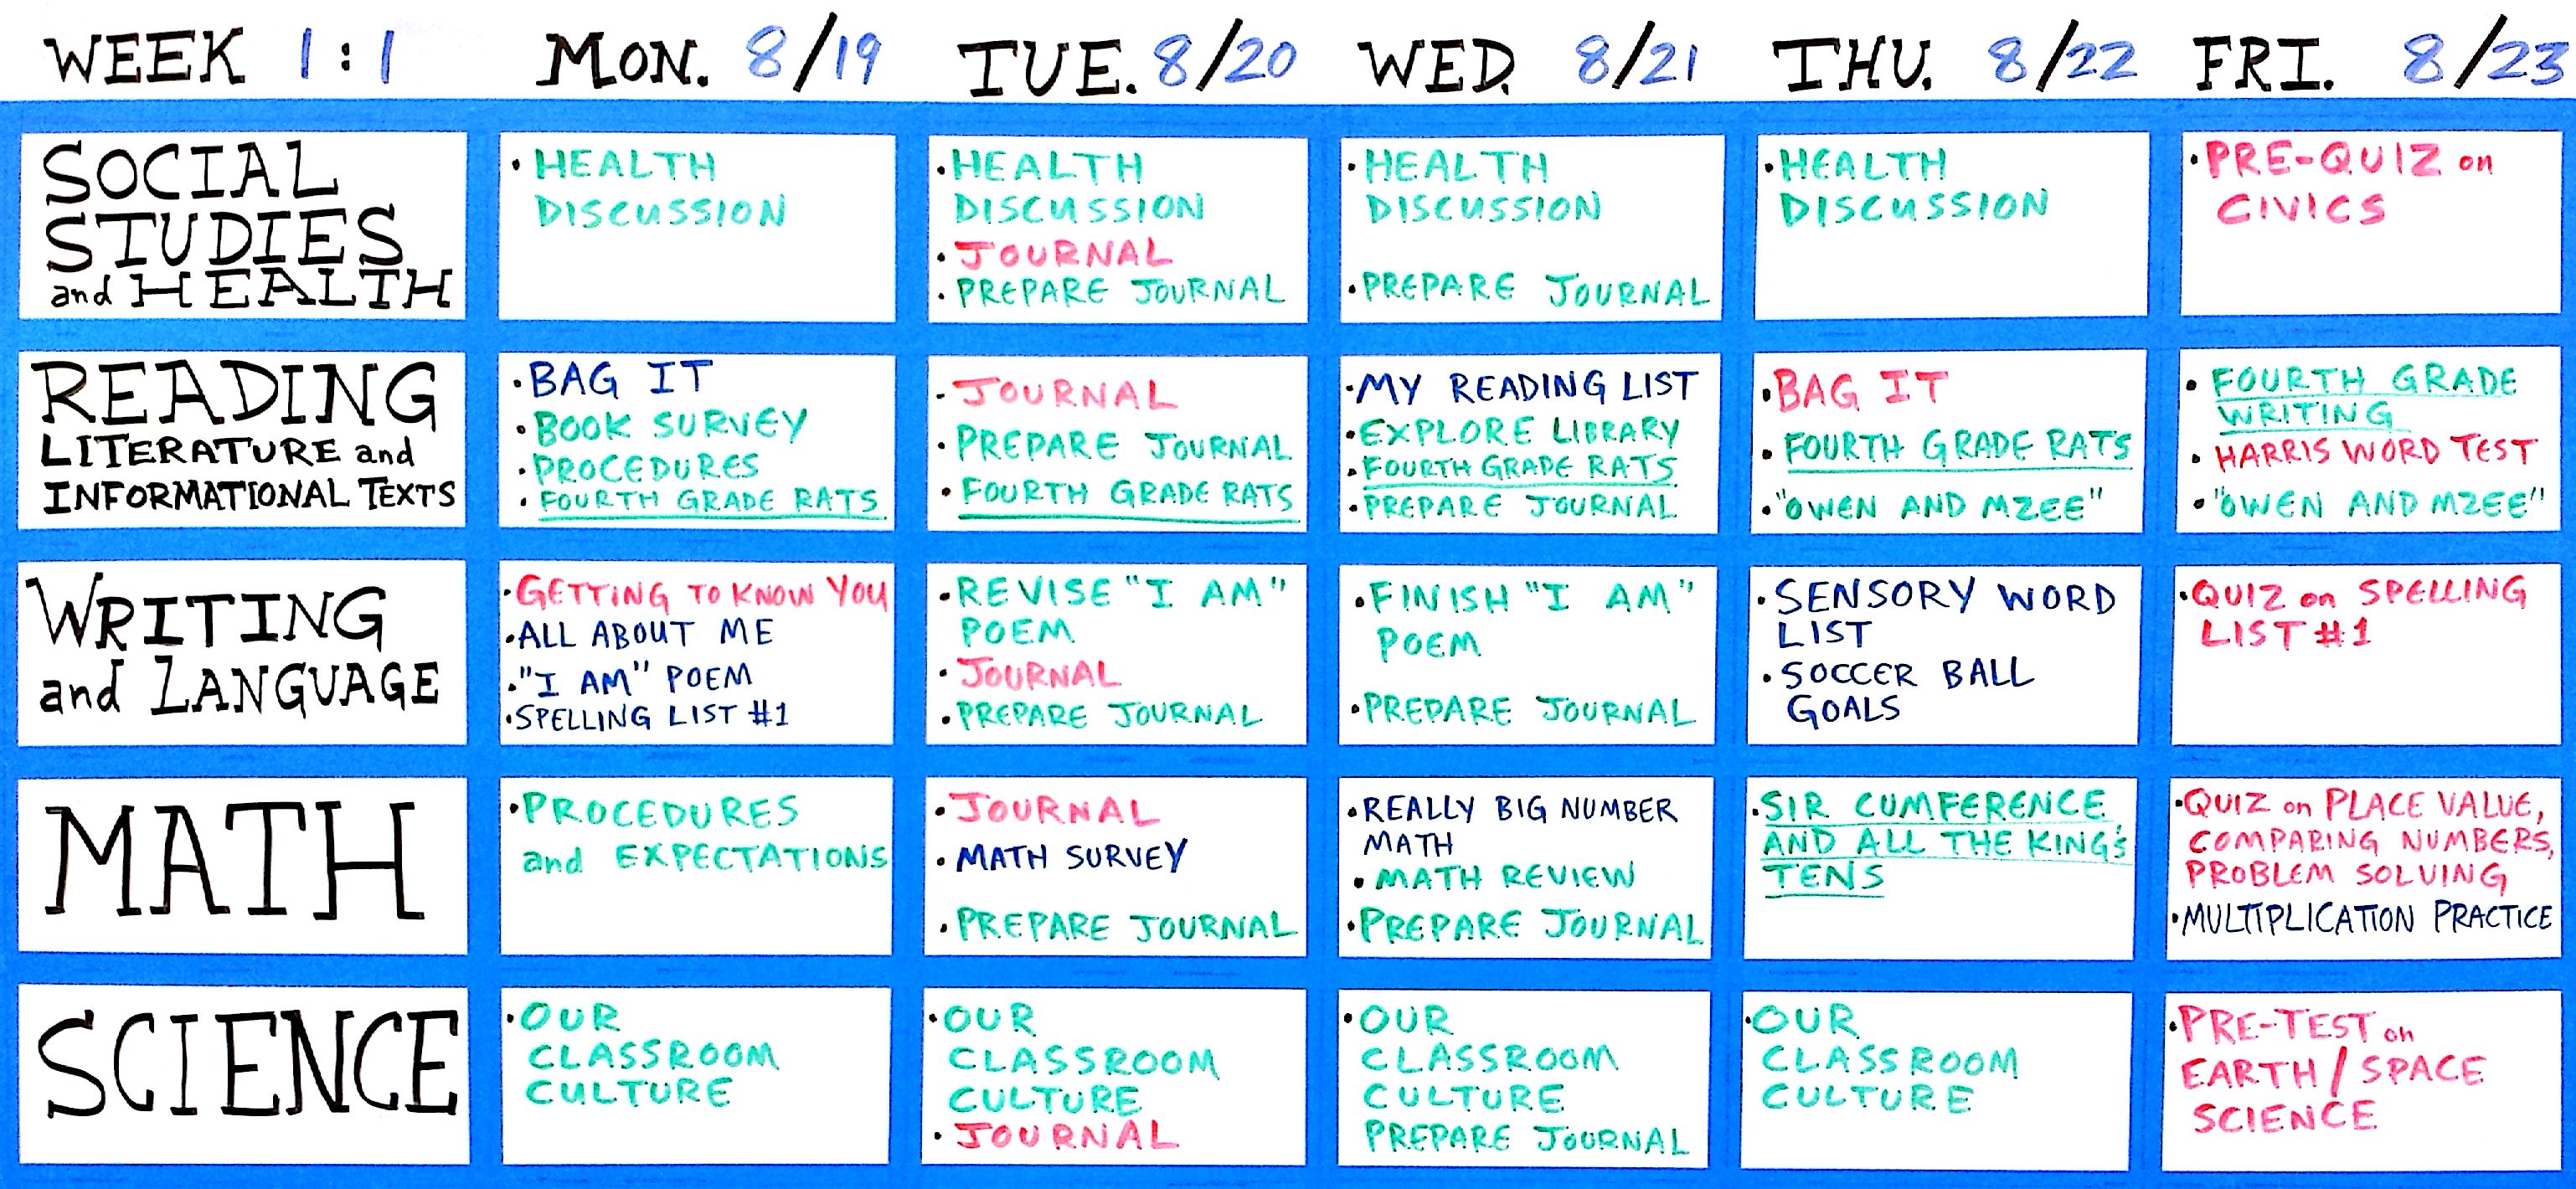 WEEK 1:1 MON. 8/19 TUE. 8/20 WED. 8/21 THU. 8/22 FRI. 8/23
SOCIAL
STUDIES
and HEALTH
• HEALTH
DISCUSSION
• HEALTH
DISCUSSION
• JOURNAL
• PREPARE JOURNAL
• HEALTH
DISCUSSION
• PREPARE JOURNAL
• HEALTH
DISCUSSION
• PRE-QUIZ on
CIVICS
READING
LITERATURE and
INFORMATIONAL TEXTS
• BAG IT
• BOOK SURVEY
• PROCEDURES
• FOURTH GRADE RATS
- JOURNAL
• PREPARE JOURNAL
• FOURTH GRADE RATS
• MY READING LIST
• EXPLORE LIBRARY
• FOURTH GRADE RATS
• PREPARE JOURNAL
• BAG IT
• FOURTH GRADE RATS
• "OWEN AND MZEE"
• FOURTH GRADE
WRITING
• HARRIS WORD TEST
• "OWEN AND MZEE"
WRITING
and LANGUAGE
• GETTING TO KNOW YOU
• ALL ABOUT ME
• "I AM" POEM
• SPELLING LIST #1
• REVISE "I AM"
POEM
• JOURNAL
• PREPARE JOURNAL
• FINISH "I AM"
POEM
• PREPARE JOURNAL
• SENSORY WORD
LIST
• SOCCER BALL
GOALS
• QUIZ on SPELLING
LIST #1
MATH
• PROCEDURES
and EXPECTATIONS
• JOURNAL
• MATH SURVEY
• PREPARE JOURNAL
• REALLY BIG NUMBER
MATH
• MATH REVIEW
• PREPARE JOURNAL
• SIR CUMFERENCE
AND ALL THE KING'S
TENS
• QUIZ on PLACE VALUE,
COMPARING NUMBERS,
PROBLEM SOLVING
• MULTIPLICATION PRACTICE
SCIENCE
• OUR
CLASSROOM
CULTURE
• OUR
CLASSROOM
CULTURE
• JOURNAL
• OUR
CLASSROOM
CULTURE
PREPARE JOURNAL
• OUR
CLASSROOM
CULTURE
• PRE-TEST on
EARTH/SPACE
SCIENCE